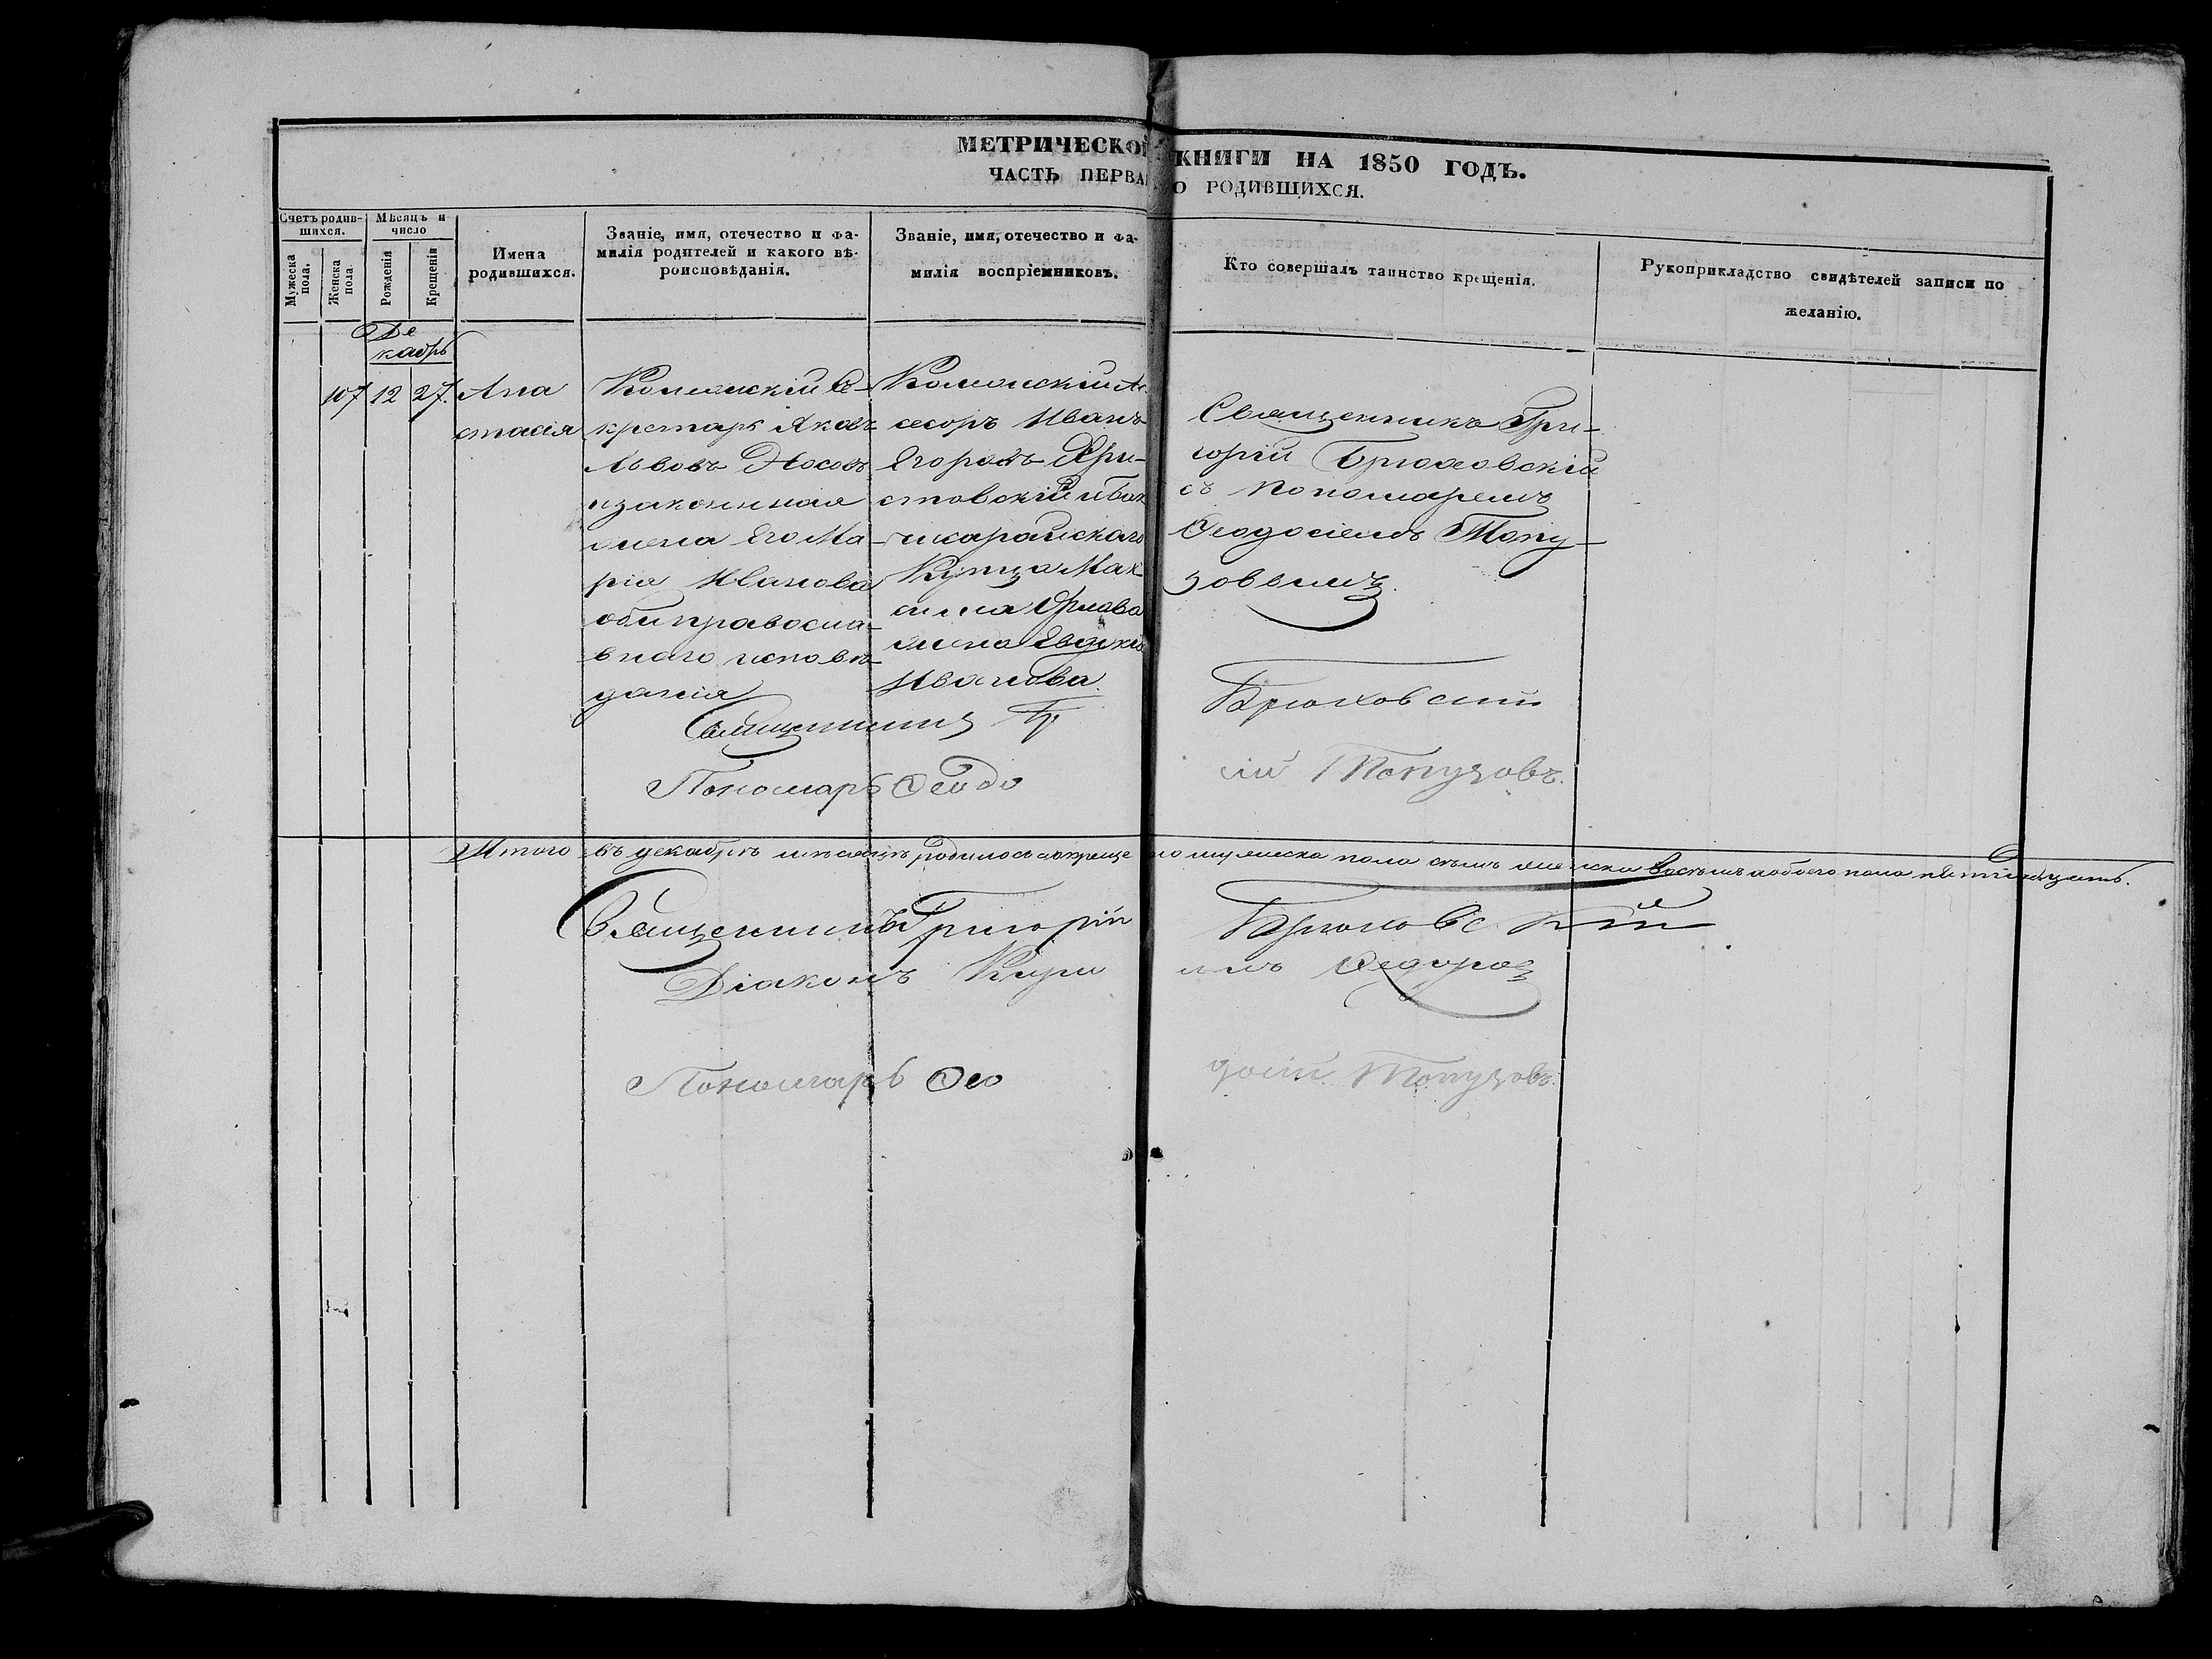 МЕТРИЧЕСКОЙ КНИГИ НА 1850 ГОДЪ.
ЧАСТЬ ПЕРВАЯ О РОДИВШИХСЯ.
Счетъ родив-
шихся.
Мужеска пола.
Женска пола.
Мѣсяцъ и
число
Рожденія
Крещенія
Имена
родившихся.
Званіе, имя, отечество и фа-
милія родителей и какого вѣ-
роисповѣданія.
Званіе, имя, отечество и фа-
милія воспріемниковъ.
Кто совершалъ таинство крещенія.
Рукоприкладство свидѣтелей записи по
желанію.
Де
кабрь
107 12 27.
Ана
стасія
Се-
кретарь Яковъ
Львовъ Носовъ
и законная
жена Его Ма-
рія Иванова
оби правосла-
внаго исповѣ-
данія
Ас-
сесоръ Иванъ
Егоровъ Хри-
стовскій и Бах-
чисарайскаго
Купца Мак-
сима Орлова
жена Евдокія
Иванова.
Священникъ Гри-
горій Брюховскій
съ пономаремъ
Ѳеодосіемъ Топу-
зовымъ.
Священникъ Гр. Брюховскій
Пономарь Ѳеодосій Топузовъ.
Итого въ декабрѣ мѣсяцѣ родилось и крещено мужеска пола семь женска восемь а обоего пола пятнадцать.
Священникъ Григорій Брюховскій
Діаконъ Ѳедоровъ
Пономарь Ѳеодосій Топузовъ.